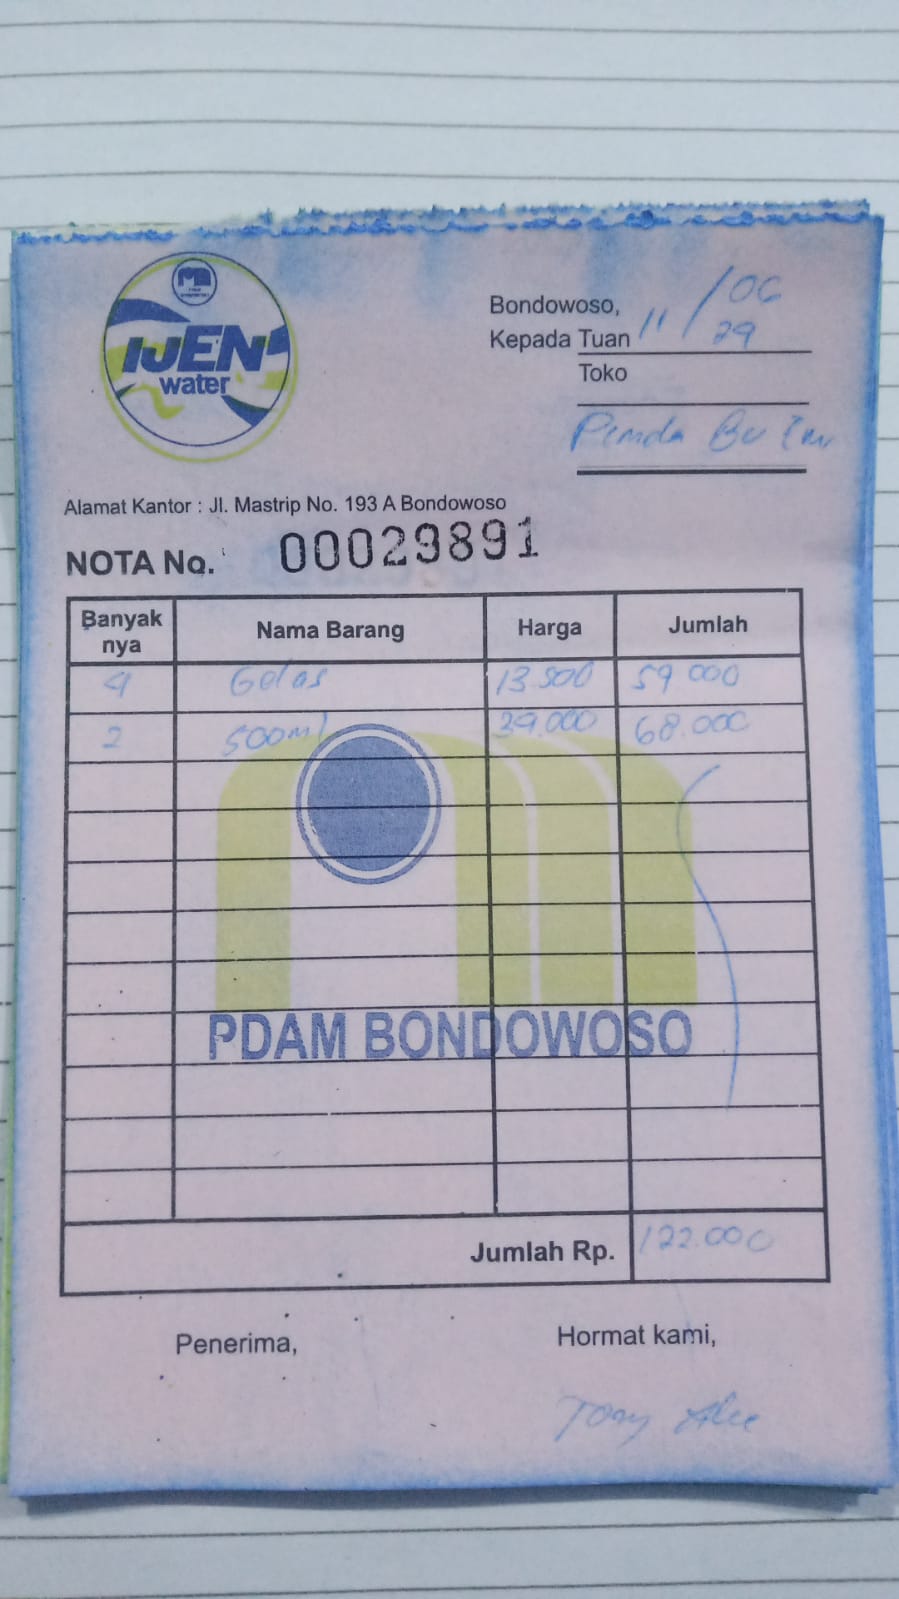 IJEN
water
Bondowoso, 11/06
Kepada Tuan 24
Toko
Pemda Bu
Alamat Kantor : Jl. Mastrip No. 193 A Bondowoso
NOTA No. 00029891
Banyak nya Nama Barang Harga Jumlah
4 Gelas 13.500 54.000
2 500ml 34.000 68.000
PDAM BONDOWOSO
Jumlah Rp. 122.000
Penerima, Hormat kami,
Tony